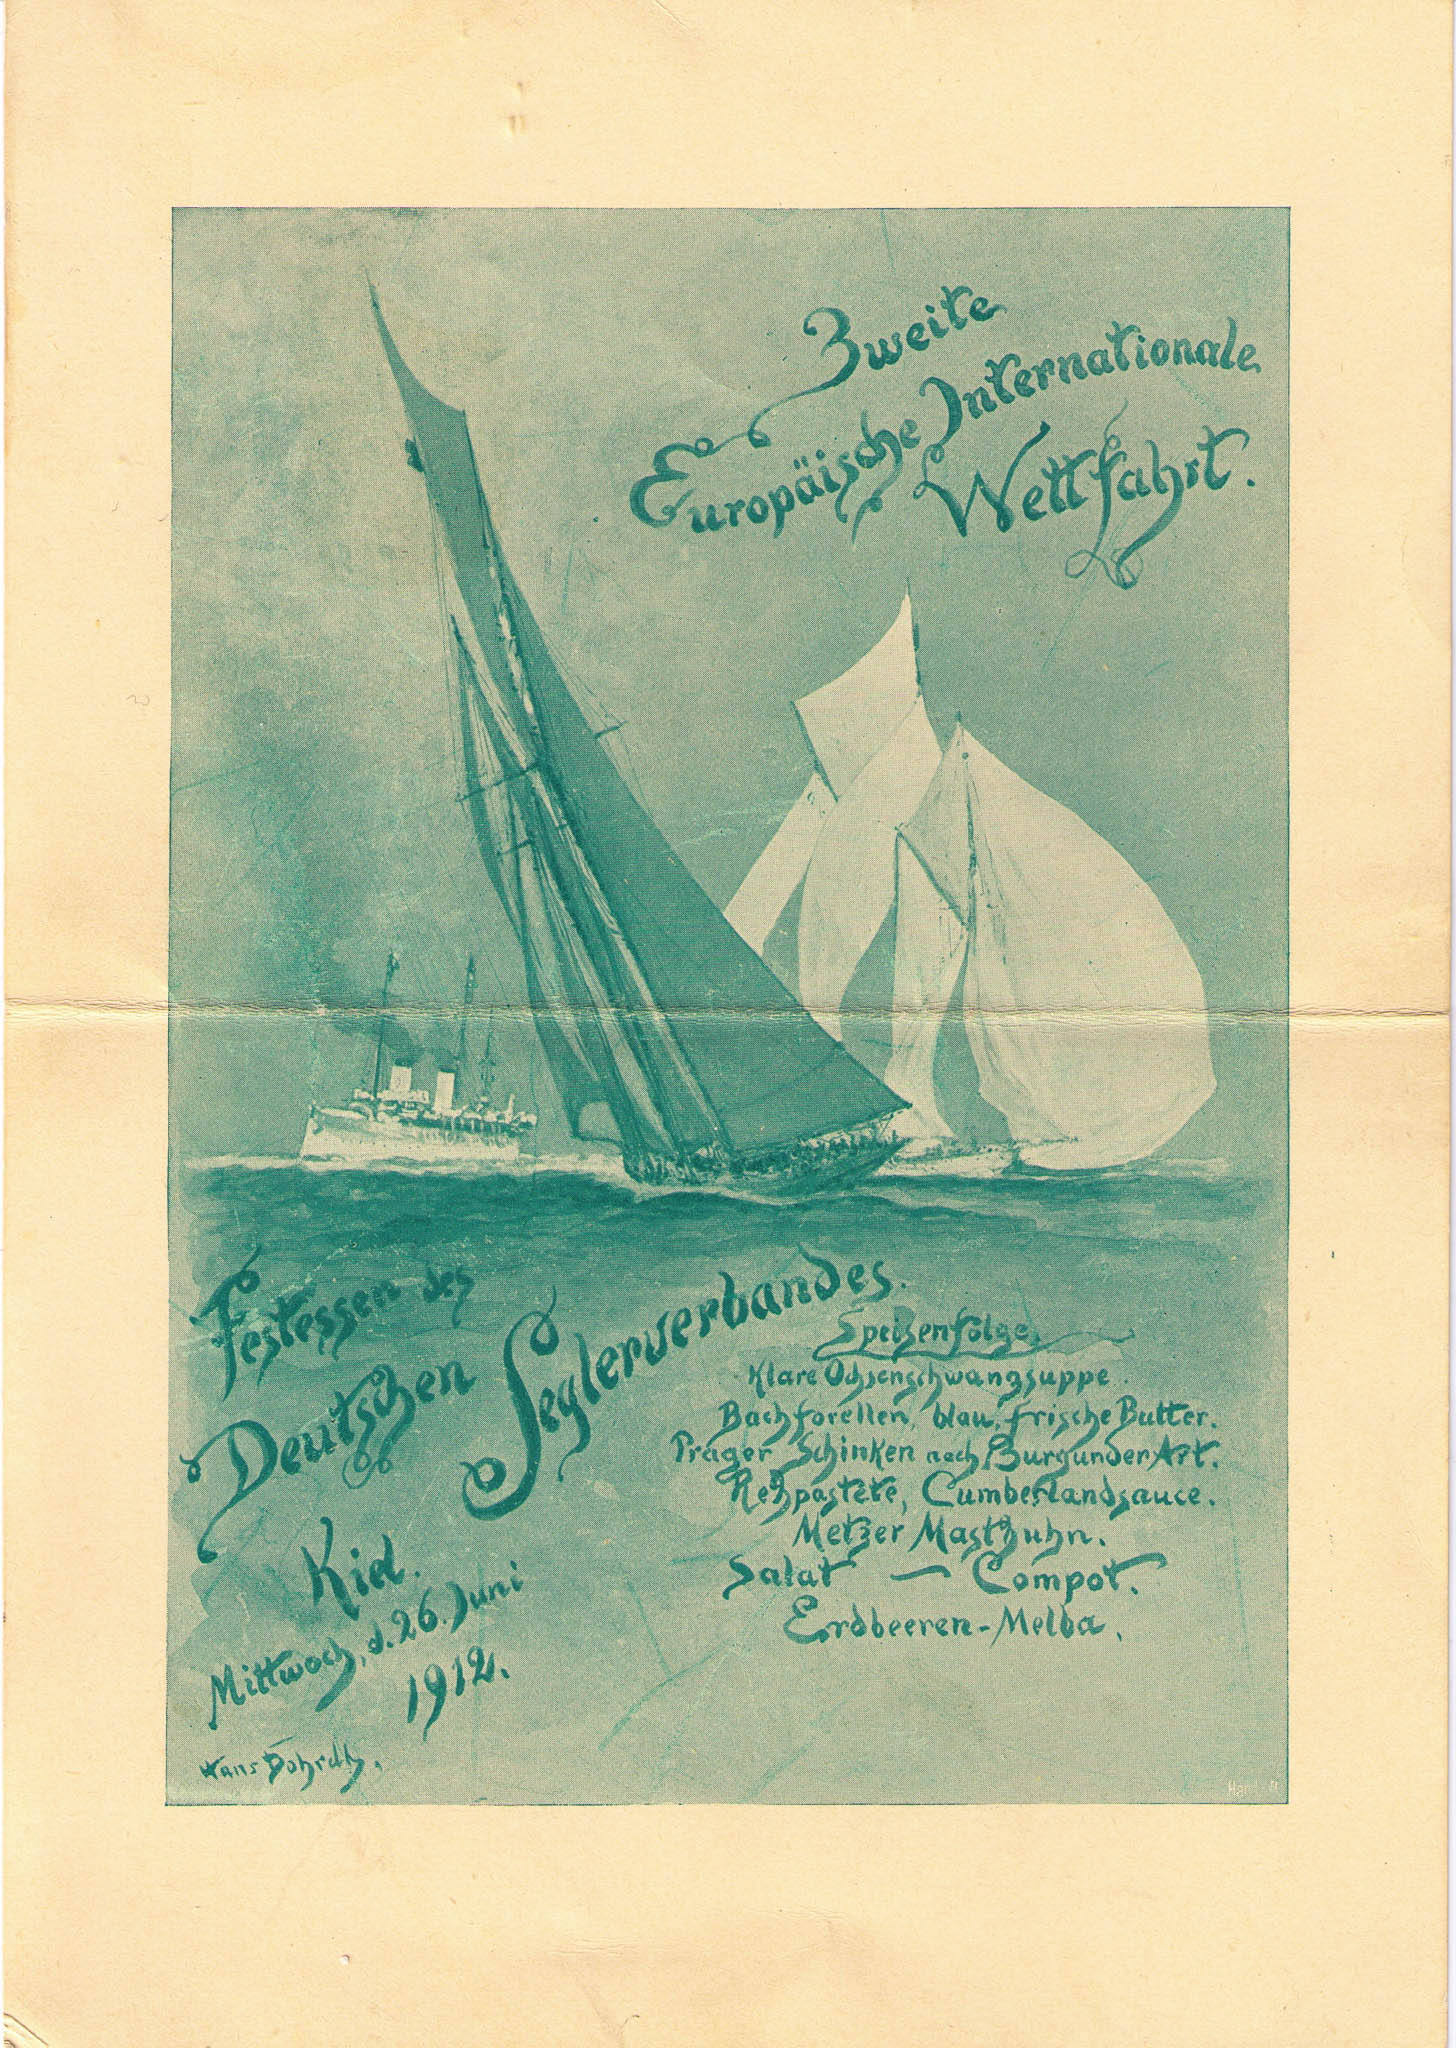 Zweite
Europäische Internationale
Wettfahrt.
Festessen des
Deutschen Seglerverbandes.
Kiel.
Mittwoch, d. 26. Juni
1912.
Speisenfolge.
Klare Ochsenschwanzsuppe.
Bachforellen, blau, frische Butter.
Prager Schinken nach Burgunder Art.
Rehpastete, Cumberlandsauce.
Metzer Masthuhn.
Salat — Compot.
Erdbeeren-Melba.
Hans Bohrdt.